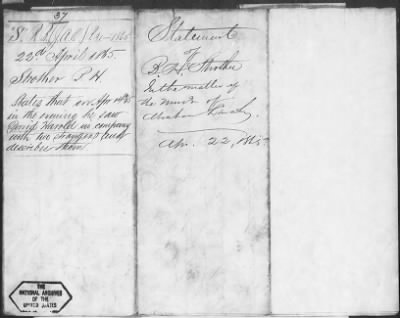 37
S. R
22d April 1865.
Strother P H
States that on Apr 14th
in the evening he saw
David Harold in company
with two strangers (cant
describe them
THE
NATIONAL ARCHIVES
OF THE
UNITED STATES
Statement
of
Strother
In the matter of
the Murder of
Abraham Lincoln.
Apr. 22, 1865